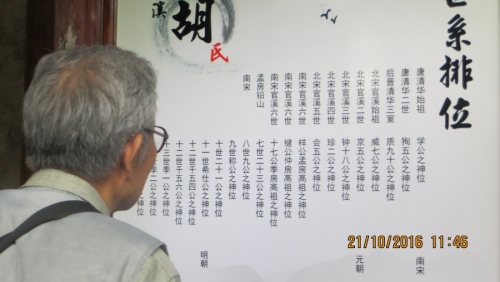 系排位
溪
胡
氏
唐清华始祖 学公之神位
唐清华二世 徇五公之神位
后普清华三室 质九十公之神位
北宋官溪始祖 威七公之神位
北宋官溪二世 京五公之神位
北宋官溪三世 钟十八公之神位
北宋官溪四世 珍二公之神位
北宋官溪五世 会五公之神位
南宋官溪六世 样公孟房高祖之神位
南宋官溪六世 公仲房高祖之神位
南宋官溪六世 十七公季房高祖之神位
孟房铅山 七世二十三公之神位
南宋 八世九公之神位
九世称公之神位
十世二十一公之神位
十一世希仕公之神位
十二世千五四公之神位
十二世千五六公之神位
十三世季一公之神位
二公之神位
公之神位
南宋
元朝
明朝
21/10/2016 11:46